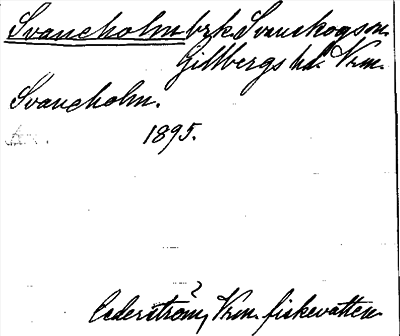 Svaneholm brk. Svanskogs sn.
Gillbergs hd. Vrm.
Svaneholm.
1895.
Cederström, Vrm. fiskevatten